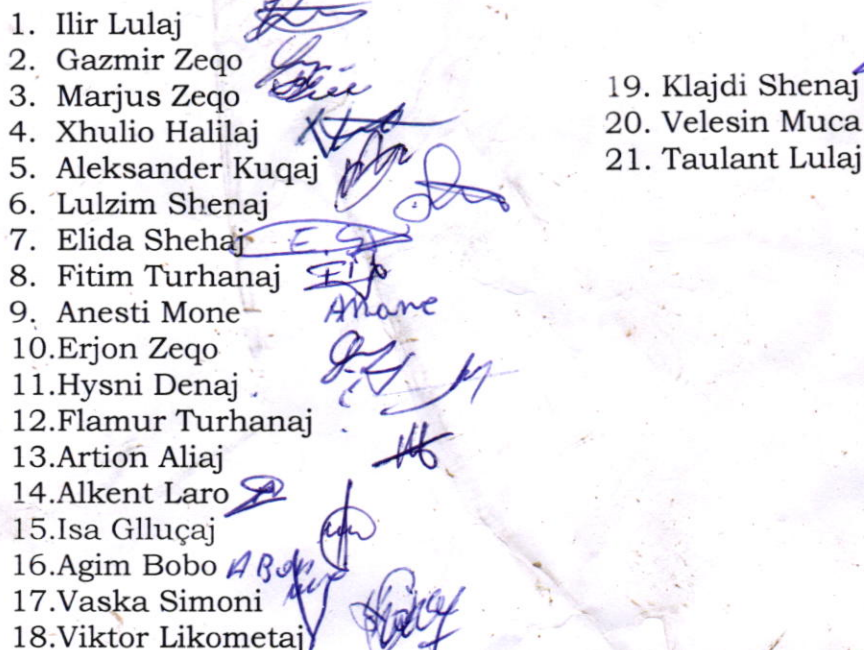 1. Ilir Lulaj
2. Gazmir Zeqo
3. Marjus Zeqo
4. Xhulio Halilaj
5. Aleksander Kuqaj
6. Lulzim Shenaj
7. Elida Shehaj E.S
8. Fitim Turhanaj
9. Anesti Mone AMone
10.Erjon Zeqo
11.Hysni Denaj
12.Flamur Turhanaj
13.Artion Aliaj
14.Alkent Laro
15.Isa Glluçaj
16.Agim Bobo
17.Vaska Simoni
18.Viktor Likometaj
19. Klajdi Shenaj
20. Velesin Muca
21. Taulant Lulaj